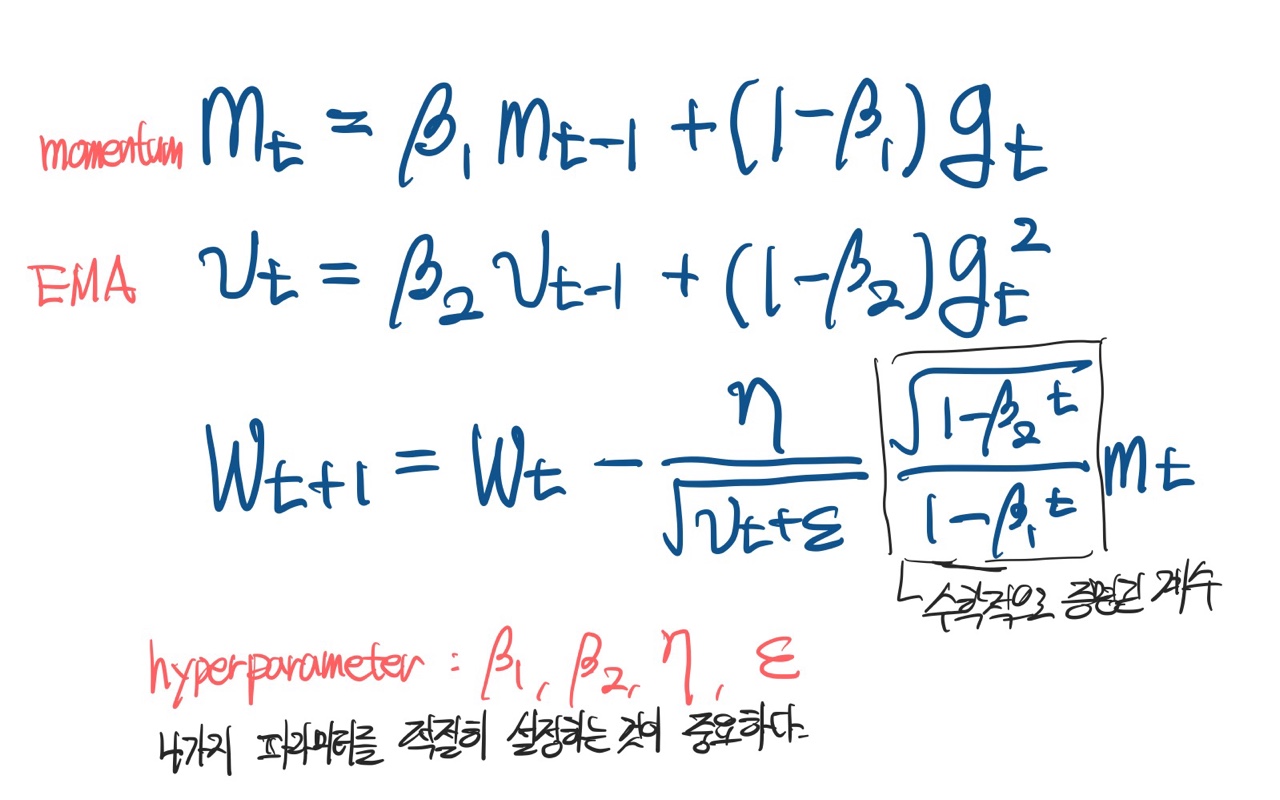 momentum m_t = β_1 m_{t-1} + (1-β_1) g_t
EMA v_t = β_2 v_{t-1} + (1-β_2) g_t^2
W_{t+1} = W_t - \frac{η}{\sqrt{v_t+ε}} \frac{\sqrt{1-β_2^t}}{1-β_1^t} m_t
수학적으로 증명된 계수
hyperparameter : β_1, β_2, η, ε
4가지 파라미터를 적절히 설정하는 것이 중요하다.